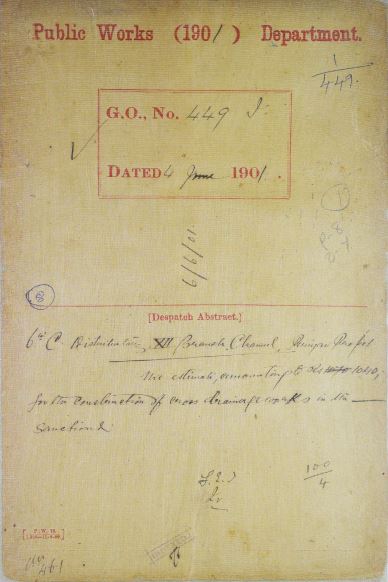 Public Works (1901) Department.
1
449.
G.O., No. 449 I
DATED 4 June 1901.
6/6/01
[Despatch Abstract.]
6th C Distributary, XII Branch Channel, Project
The estimate, amounting to Rs 1040,
for the construction of cross drainage works in the
Sanctioned
100
4
461